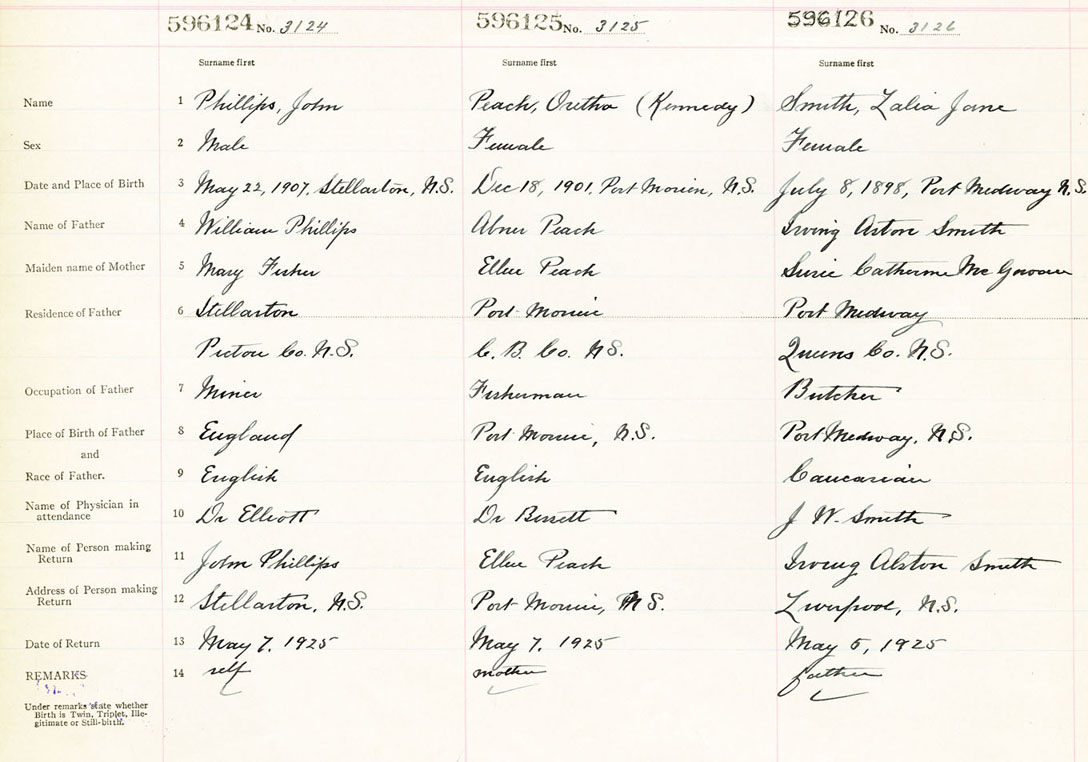 596124 No. 3124 596125 No. 3125 596126 No. 3126
Surname first Surname first Surname first
Name 1 Phillips, John Peach, Oretha (Kennedy) Smith, Zalia Jane
Sex 2 Male Female Female
Date and Place of Birth 3 May 22, 1907, Stellarton, N.S. Dec 18, 1901, Port Morien, N.S. July 8, 1898, Port Medway N.S.
Name of Father 4 William Phillips Abner Peach Irving Aston Smith
Maiden name of Mother 5 Mary Fisher Ellen Peach Susie Catherine McGowan
Residence of Father 6 Stellarton Port Morien Port Medway
Pictou Co. N.S. C. B. Co. N.S. Queens Co. N.S.
Occupation of Father 7 Miner Fisherman Butcher
Place of Birth of Father 8 England Port Morien, N.S. Port Medway, N.S.
and
Race of Father. 9 English English Caucasian
Name of Physician in
attendance 10 Dr Elliott Dr Bissett J W. Smith
Name of Person making
Return 11 John Phillips Ellen Peach Irving Alston Smith
Address of Person making
Return 12 Stellarton, N.S. Port Morien, N.S. Liverpool, N.S.
Date of Return 13 May 7, 1925 May 7, 1925 May 5, 1925
REMARKS 14 self mother father
Under remarks state whether
Birth is Twin, Triplet, Ille-
gitimate or Still-birth.